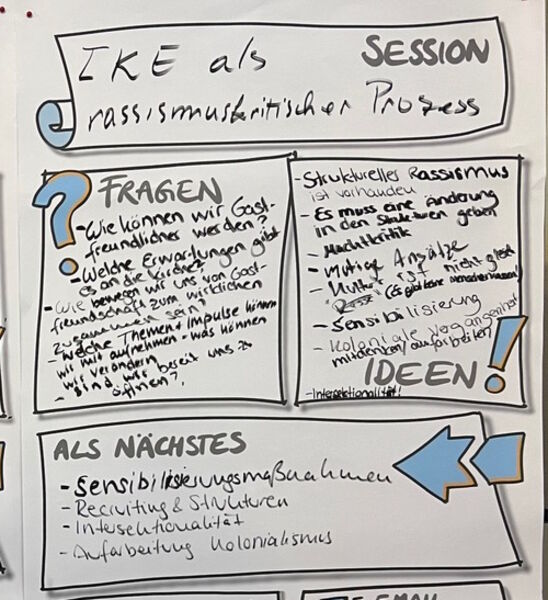 IKE als
SESSION
rassismuskritischer Prozess
FRAGEN
- Wie können wir Gast-
freundlicher werden?
- Welche Erwartungen gibt
es an die Kirche?
- Wie bewegen wir uns von Gast-
freundschaft zum wirklichen
zusammen sein?
- Welche Themen + Impulse können
wir mit aufnehmen - was können
wir verändern
- Sind wir bereit uns zu
öffnen?
- Struktureller Rassismus
ist vorhanden
- Es muss eine Änderung
in den Strukturen geben
- Machtkritik
- Mutige Ansätze
- ist nicht gleich
(Es gibt keine
- Sensibilisierung
- Koloniale Vergangenheit
mitdenken/aufarbeiten
IDEEN
- Intersektionalität!
ALS NÄCHSTES
- Sensibilisierungsmaßnahmen
- Recruiting & Strukturen
- Intersektionalität
- Aufarbeitung Kolonialismus